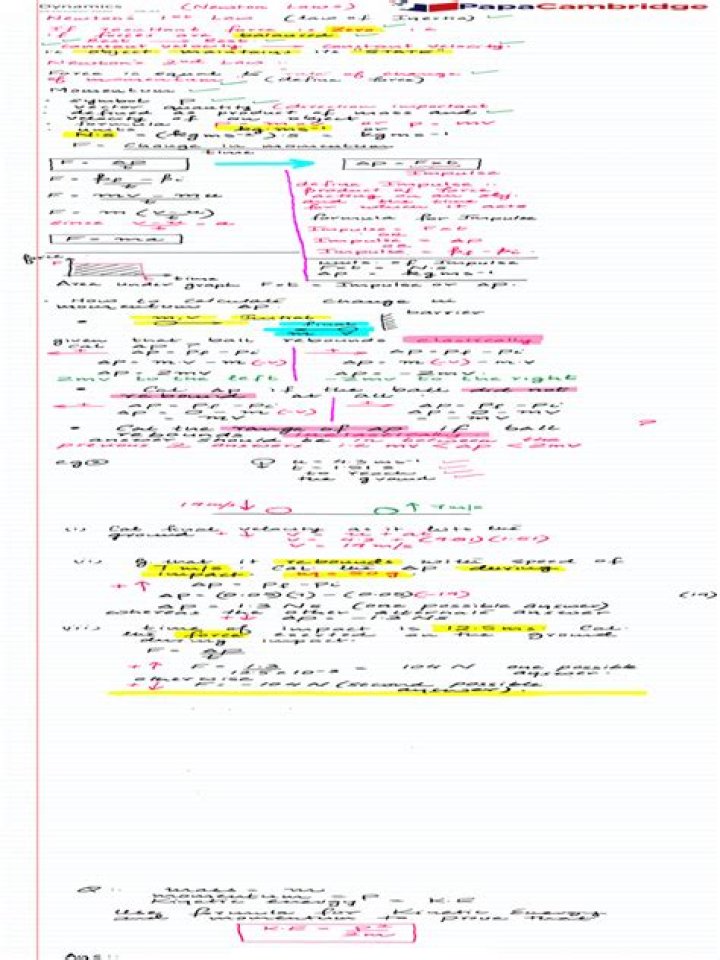 Dynamics (Newton Laws)
PapaCambridge
Newtons 1st Law (Law of Inertia)
If resultant force is Zero i.e
if forces are balanced
constant velocity constant velocity.
i.e object maintains its "STATE"
Newton's 2nd Law :
Force is equal to rate of change
of momentum (define force)
Momentum :
• symbol P
• vector quantity (direction important)
• defined as product of mass and
velocity of an object
• formula P = m × v or p = mv
• units kg ms-1 or
N.s = (kg ms-2).s = kg ms-1
F = Change in momentum
time
F = ΔP/t
F = Pf - Pi
F = mv - mu
F = m (v-u)
since v-u = a
F = ma
Δp = F×t
Impulse
define Impulse :
product of force
acting on an obj.
and the time
for which it acts
formula for Impulse
Impulse = F×t
or
Impulse = Δp
or
Impulse = Pf - Pi
units of Impulse
F×t = N.s
Δp = kg ms-1
force
time
Area under graph F×t = Impulse or Δp.
• How to calculate change in
momentum Δp.
m,v Initial
final
barrier
given that ball rebounds elastically
cal Δp ?
Δp = Pf - Pi
Δp = m.v - m(-v)
Δp = 2mv
2mv to the left
Δp = Pf - Pi
Δp = m(-v) - m.v
Δp = -2mv.
-2mv to the right
• Cal Δp if the ball did not
rebound at all
Δp = Pf - Pi
Δp = 0 - m(-v)
= mv
Δp = Pf - Pi
Δp = 0 - mv
= -mv
• Cal the range of Δp if ball
rebounds inelastically
answer should be in between the
previous 2 answers mv < Δp < 2mv
u = 4.3 ms-1
t = 1.51 s
to reach
the ground
19 m/s
7 m/s
i) Cal final velocity as it hits the
ground
v = u + at
v = 4.3 + (9.81)(1.51)
v = 19 m/s
if that it rebounds with speed of
7 m/s Cal the Δp during
impact. m = 50 g
Δp = Pf - Pi
Δp = (0.05)(7) - (0.05)(-19)
Δp = 1.3 Ns (one possible answer)
whereas the other alternate answer
Δp = -1.3 Ns
iii) time of impact is 12.5 ms Cal
the force exerted on the ground
during impact.
F = ΔP/t
F = 1.3/12.5×10-3 = 104 N one possible
answer.
otherwise
F = -104 N (second possible
answer).
Q :. mass = m
momentum = P
Kinetic energy = K.E
Use formula for Kinetic Energy
and momentum to prove that
K.E = P²/2m
Ans :